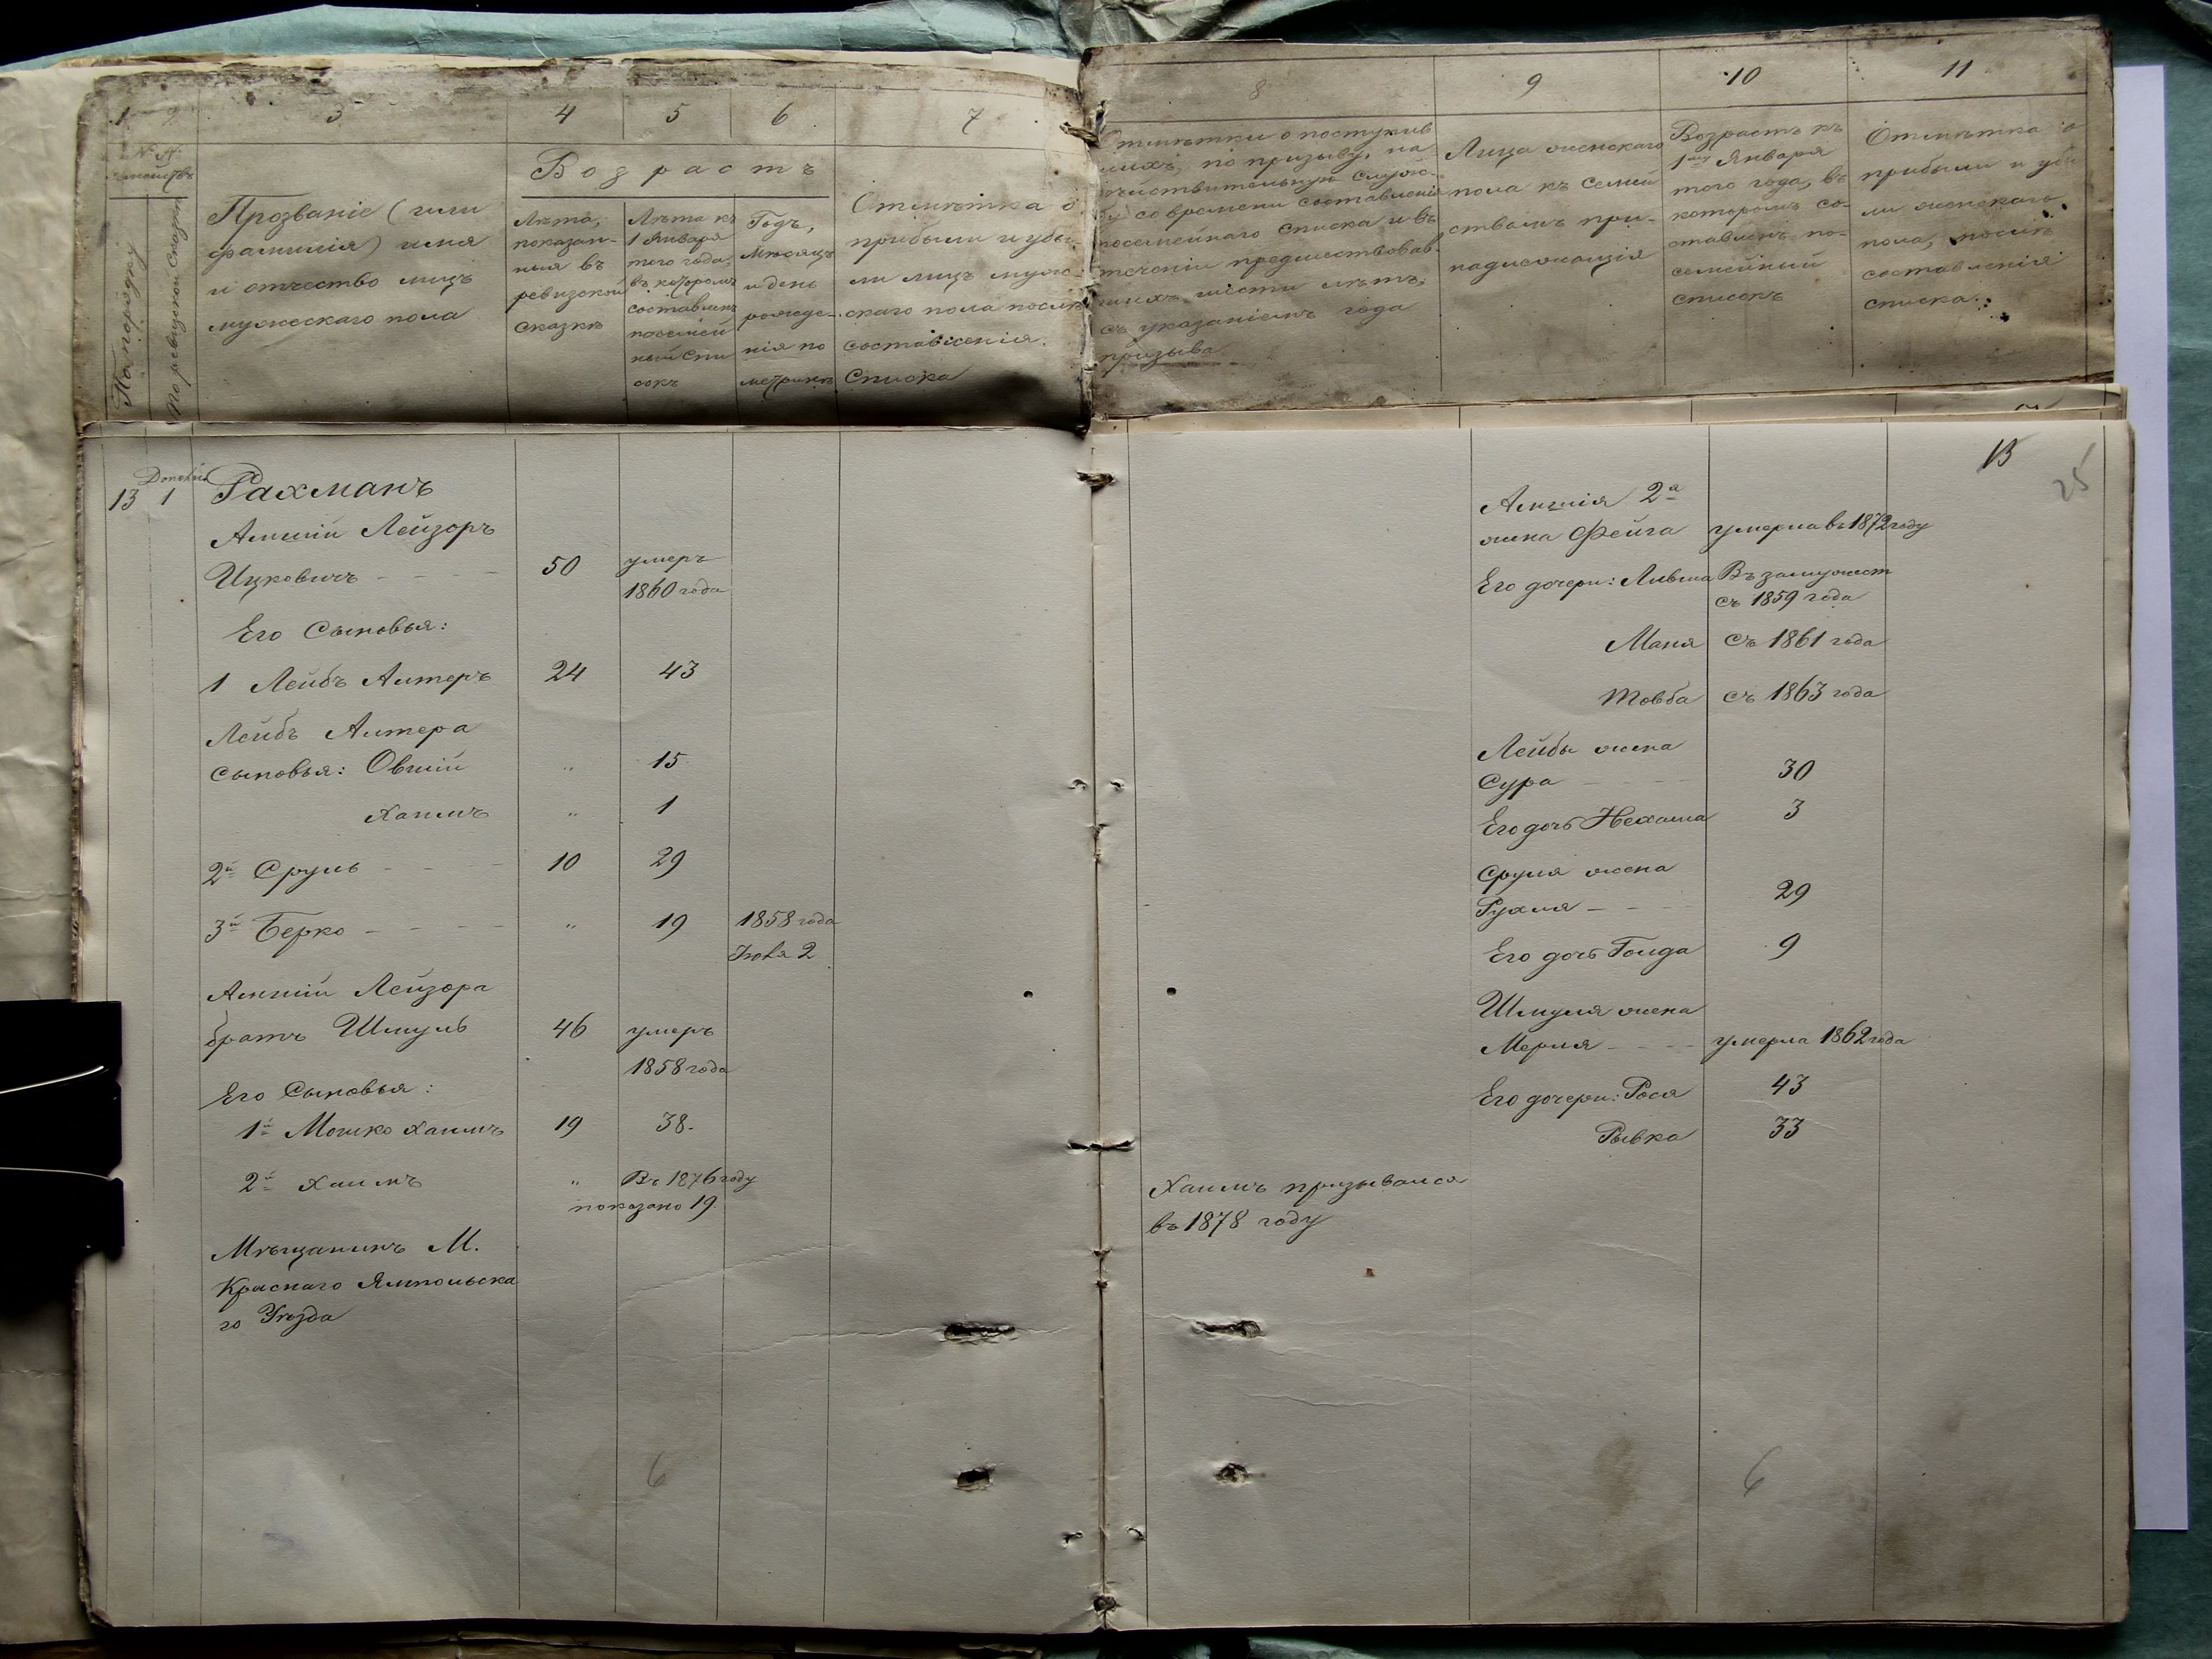 1 2 3 4 5 6 7
№ №
семействъ
По порядку
По ревизской сказкѣ
Прозваніе (или
фамилія) имя
и отчество лицъ
мужескаго пола
Возрастъ
Лѣта,
показан-
ныя въ
ревизской
сказкѣ
Лѣта къ
1 Января
того года,
въ которомъ
составленъ
посемей
ный спи
сокъ
Годъ,
мѣсяцъ
и день
рожде-
нія по
метрикѣ
Отмѣтка о
прибыли и убы-
ли лицъ муже-
скаго пола послѣ
составленія.
Списка
8 9 10 11
Отмѣтки о поступив
шихъ, по призыву, на
дѣйствительную служ-
бу со времени составленія
посемейнаго списка и въ
теченіи предшествовав-
шихъ шести лѣтъ,
съ указаніемъ года
призыва
Лица женскаго
пола къ семей
ствамъ при-
надлежащія
Возрастъ къ
1му Января
того года, въ
которомъ со-
ставленъ по-
семейный
списокъ
Отмѣтка о
прибыли и убы
ли женскаго
пола, послѣ
составленія
списка.
13
25
13 1 Рахманъ
Амшій Лейзоръ
Ицковичъ - - - - 50 умеръ
1860 года
Его Сыновья:
1 Лейбъ Алтеръ 24 43
Лейбъ Алтера
сыновья: Овшій " 15
Хаимъ " 1
2й Сруль - - - 10 29
3й Берко - - - - " 19 1858 года
2
Амшій Лейзора
братъ Шмуль 46 умеръ
1858 года
Его Сыновья:
1й Мошко Хаимъ 19 38.
2й Хаимъ " Въ 1876 году
показано 19.
Мѣщанинъ М.
Краснаго Ямпольска
го Уѣзда
6
Хаимъ призывался
въ 1878 году
Амшія 2а
жена Фейга умерла въ 1872 году
Его дочери: Ливша Въ замужест
съ 1859 года
Маня съ 1861 года
Товба съ 1863 года
Лейбы жена
Сура - - - - 30
Его дочь Нехама 3
Сруля жена
Рухля - - - 29
Его дочь Голда 9
Шмуля жена
Мерля - - - - умерла 1862 года
Его дочери: Рося 43
Рывка 33
6